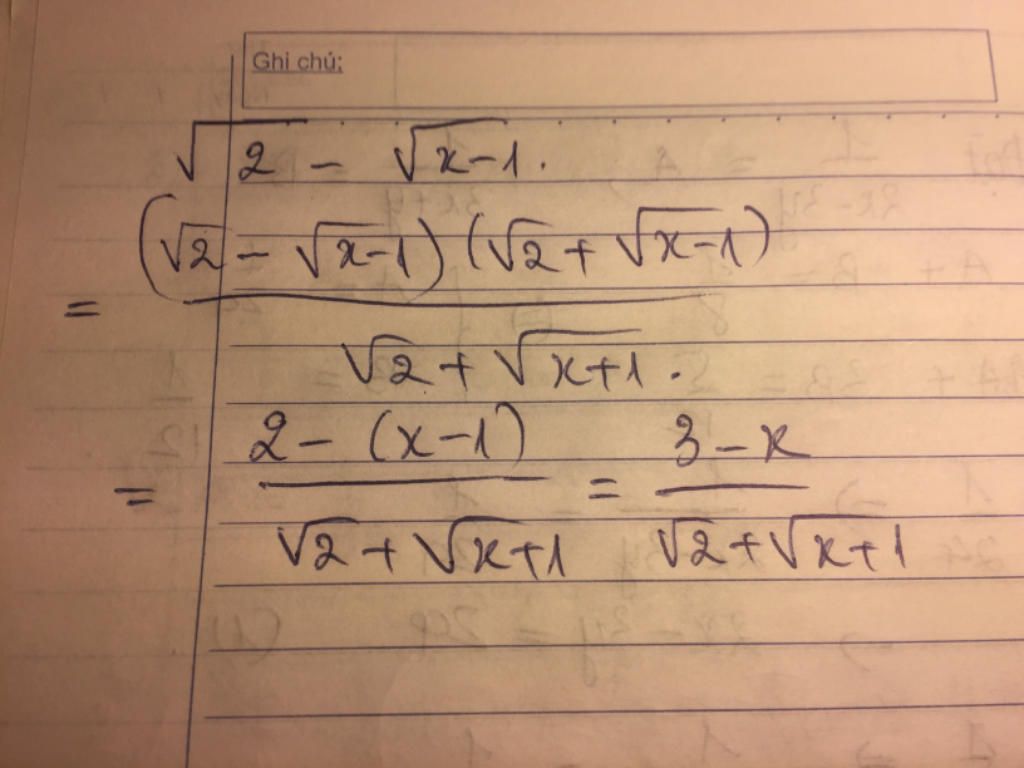 Ghi chú:
√2 - √x-1.
= (√2 - √x-1) (√2 + √x-1) / √2 + √x+1.
= 2 - (x-1) / √2 + √x+1 = 3 - x / √2 + √x+1